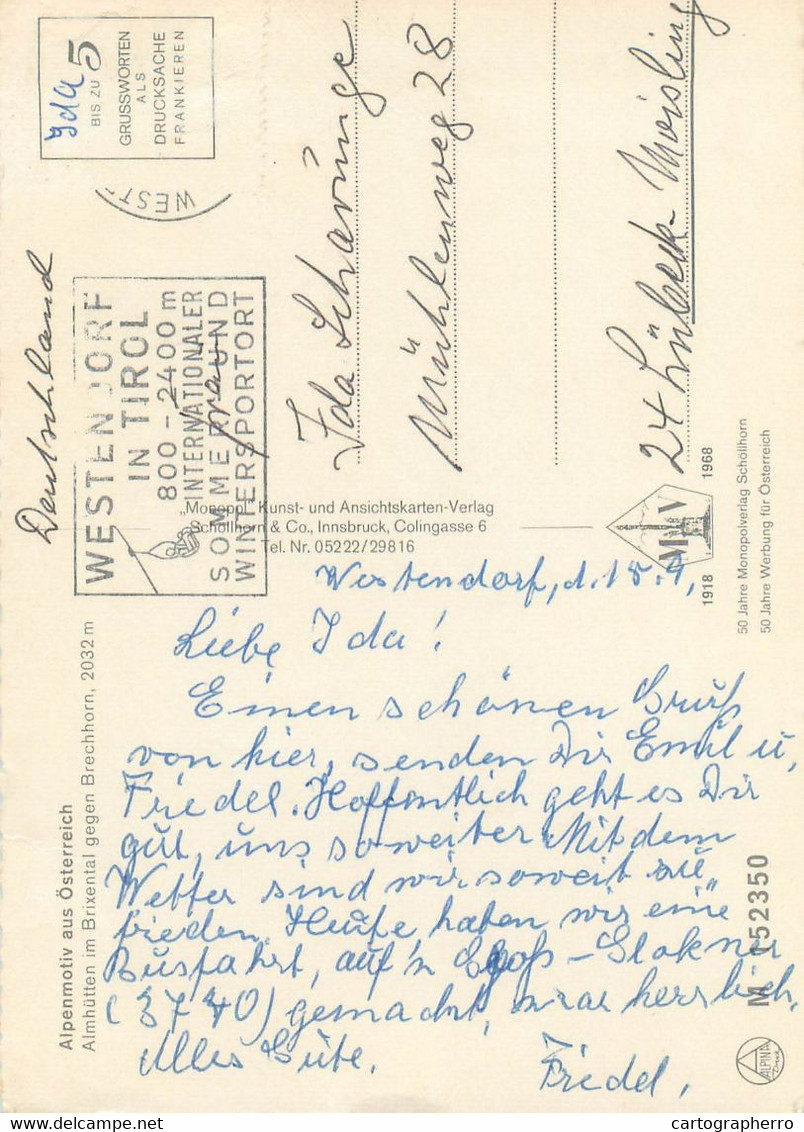 Ida
BIS ZU 5
GRUSSWORTEN
ALS
DRUCKSACHE
FRANKIEREN
WEST
Deutschland
WESTENDORF
IN TIROL
800-2400 m
INTERNATIONALER
SOMMER UND
WINTERSPORTORT
Frau
Ida Scharünge
Mühlenweg 28
24 Lübeck-Moisling
„Monopol" Kunst- und Ansichtskarten-Verlag
Schöllhorn & Co., Innsbruck, Colingasse 6
Tel. Nr. 05222/29816
1918 MV 1968
50 Jahre Monopolverlag Schöllhorn
50 Jahre Werbung für Österreich
Alpenmotiv aus Österreich
Almhütten im Brixental gegen Brechhorn, 2032 m
Westendorf, d. 15.9,
Liebe Ida!
Einen schönen Gruß
von hier, senden Dir Emil u,
Friedel. Hoffentlich geht es Dir
gut, uns soweiter Mit dem
Wetter sind wir soweit zu„
frieden. Heute, haben wir eine
Busfahrt, auf'n Groß-Glokner
(3740) gemacht, war herrlich,
Alles Gute.
Friedel,
M 152350
ALPINA
Druck
cartographerro